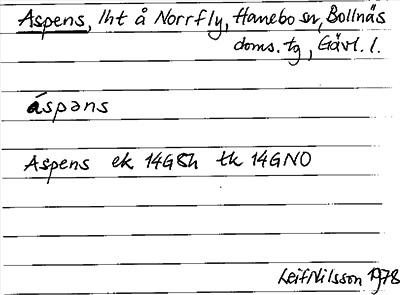 Aspens, lht å Norrfly, Hanebo sn, Bollnäs
doms. tg, Gävl. l.
áspəns
Aspens ek 14G8h tk 14GNO
Leif Nilsson 1978